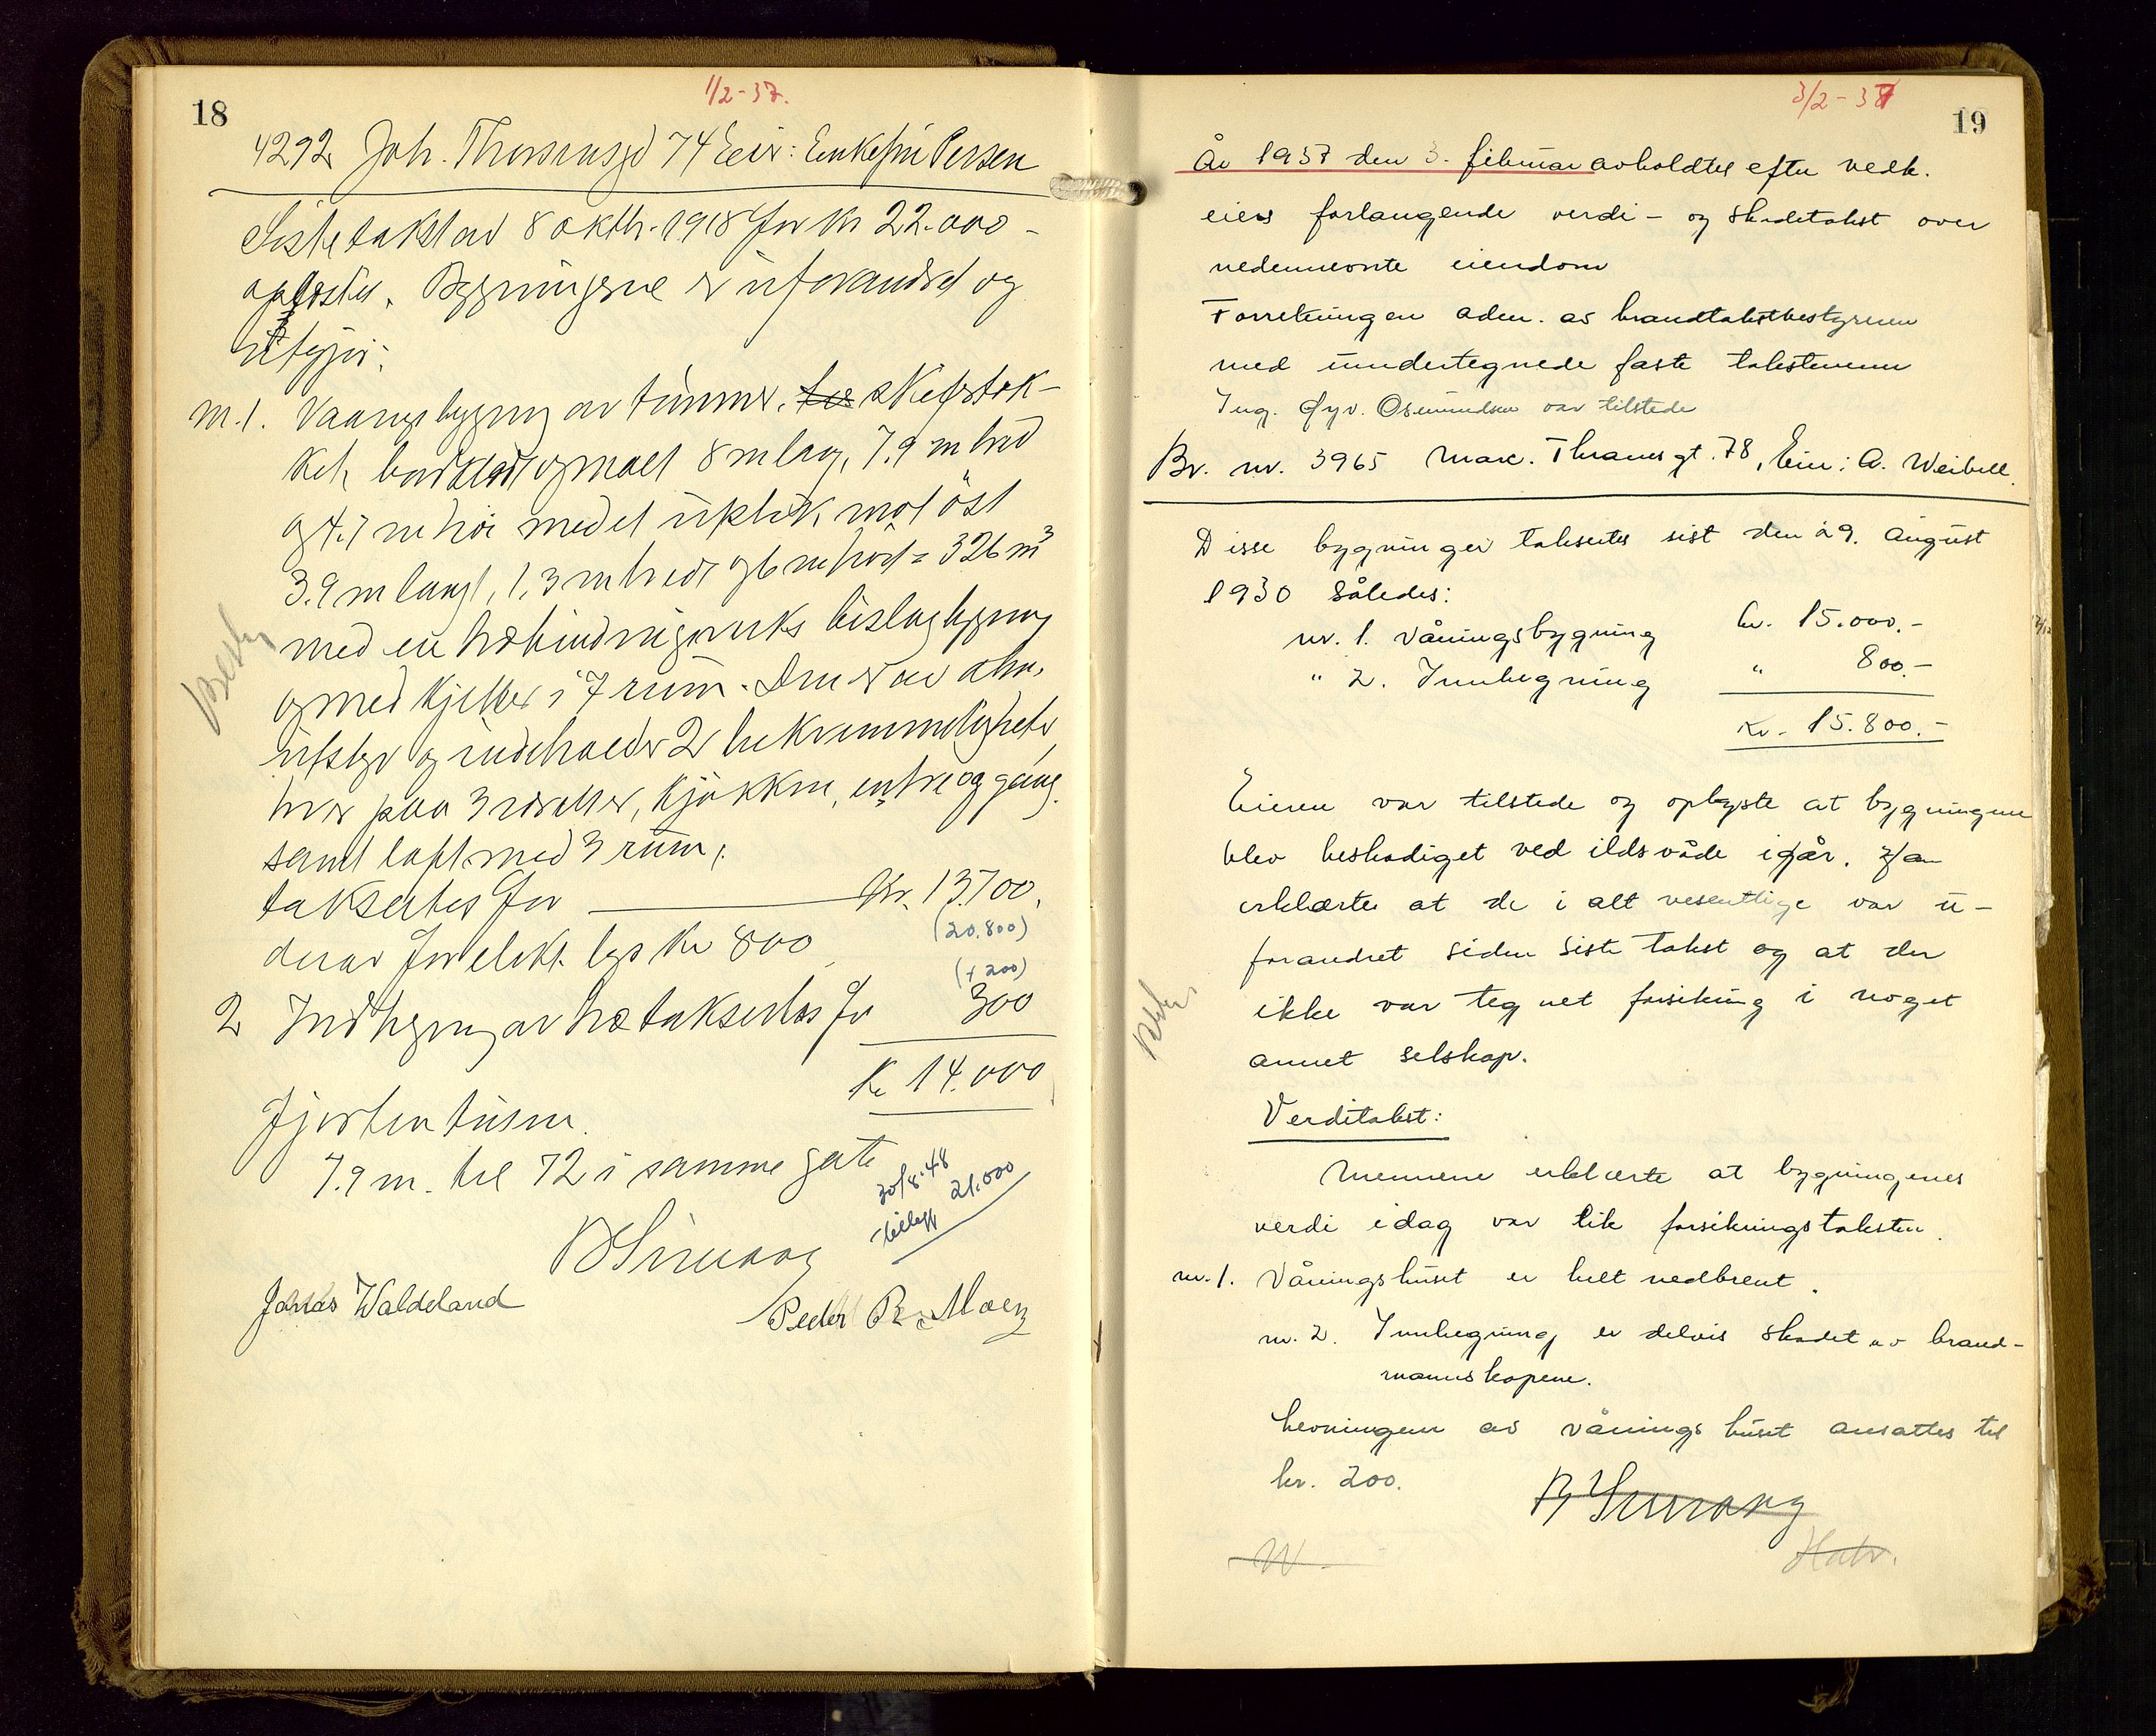 18
1/2-37.
4292 Joh. Thorsensgd 74 Eier: Enkefru Persen
Siste takst av 8 oktbr. 1918 for kr 22.000 -
oplæstes. Bygningene er uforandret og
utgjør:
nr. 1. Vaaningsbygning av tømmer, skifertæk-
ket, bordklædt og malt 8 m lang, 7.9 m bred
og 4.7 m høi med et utstik mot öst
3.9 m langt, 1,3 m bredt og 6 m høit = 326 m³
med en træbindingsverks bislagbygning
og med kjelder i 7 rum. Den er av alm.
utstyr og indeholder 2 bekvemmeligheter,
hver paa 3 værelser, kjökken, entre og gang.
samt loft med 3 rum,
taksertes for Kr. 13.700.
(20.800)
derav for elekt. lys kr 800
(+ 200)
2 Indhegning av træ taksertes for 300
Kr 14.000
Fjorten tusen.
7.9 m. til 72 i samme gate
30/8.48
tillegg 21.000
Jonas Waldeland
Peder R. Moen
3/2-37
19
År 1937 den 3. februar avholdtes efter vedk.
eiers forlangende verdi- og skadetakst over
nedennevnte eiendom
Forretningen adm. av brandtakstbestyreren
med undertegnede faste takstmenn
Ing. Øyv. Osmundsen var tilstede
Br. nr. 3965 Marc. Thranes gt. 78, Eier: A. Weibell.
Disse bygninger taksertes sist den 29. august
1930 således:
nr. 1. Våningsbygning kr. 15.000.-
" 2. Innhegning " 800.-
Kr. 15.800.-
Eieren var tilstede og oplyste at bygningene
blev beskadiget ved ildsvåde igår. Han
erklærte at de i alt vesentlige var u-
forandret siden siste takst og at der
ikke var tegnet forsikring i noget
annet selskap.
Verditakst:
Mennene erklærte at bygningenes
verdi idag var lik forsikringstaksten.
nr. 1. Våningshuset er helt nedbrent.
nr. 2. Innhegning er delvis skadet av brand-
mannskapene.
Levningene av våningshuset ansattes til
kr. 200.
W